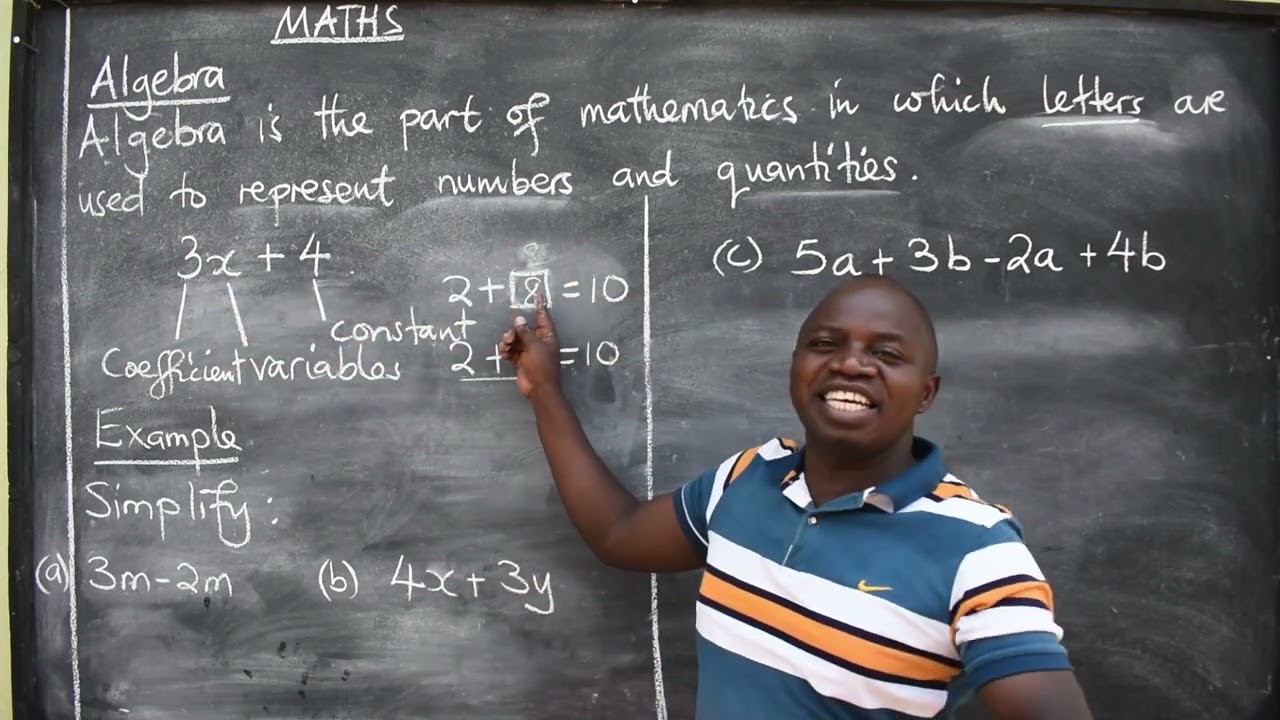 MATHS
Algebra
Algebra is the part of mathematics in which letters are
used to represent numbers and quantities.
3x + 4
constant
Coefficient variables
2 + 8 = 10
2 + = 10
Example
Simplify:
(a) 3m - 2m
(b) 4x + 3y
(c) 5a + 3b - 2a + 4b